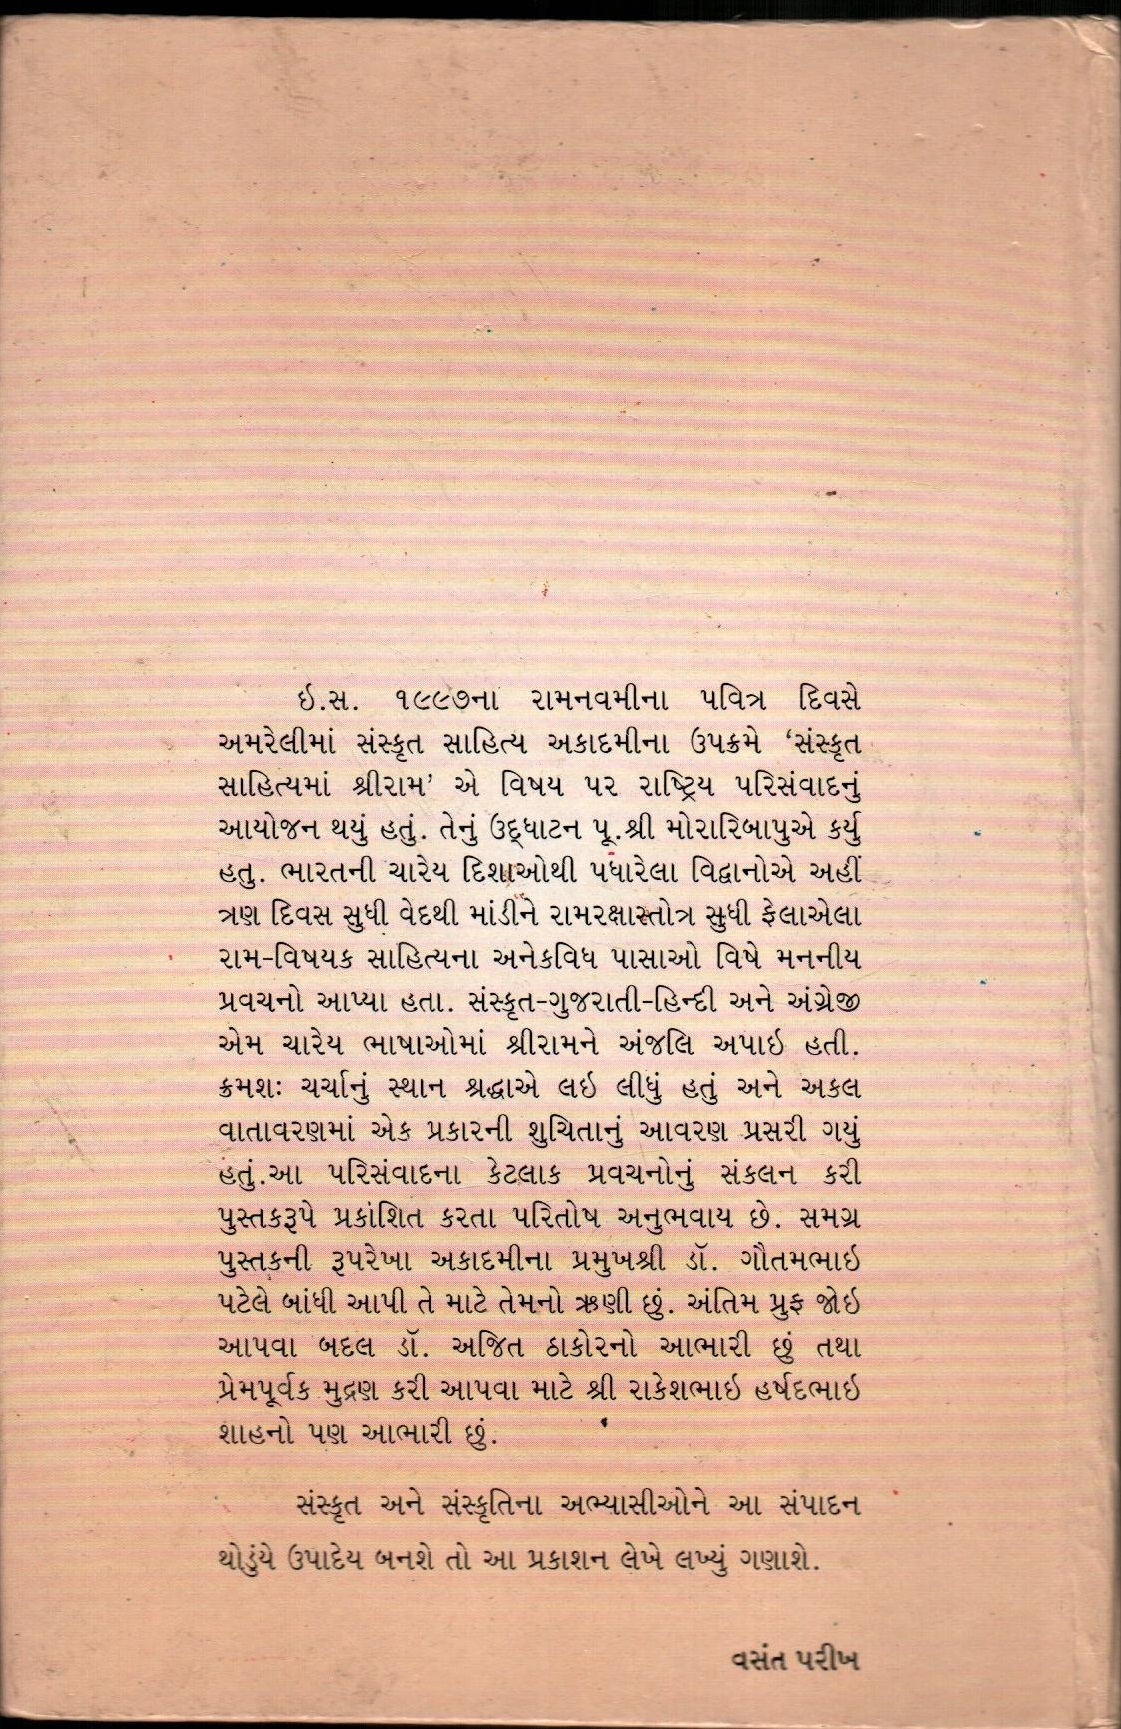 ઇ.સ. ૧૯૯૭ના રામનવમીના પવિત્ર દિવસે
અમરેલીમાં સંસ્કૃત સાહિત્ય અકાદમીના ઉપક્રમે ‘સંસ્કૃત
સાહિત્યમાં શ્રીરામ’ એ વિષય પર રાષ્ટ્રિય પરિસંવાદનું
આયોજન થયું હતું. તેનું ઉદ્ઘાટન પૂ.શ્રી મોરારિબાપુએ કર્યુ
હતુ. ભારતની ચારેય દિશાઓથી પધારેલા વિદ્વાનોએ અહીં
ત્રણ દિવસ સુધી વેદથી માંડીને રામરક્ષાસ્તોત્ર સુધી ફેલાએલા
રામ-વિષયક સાહિત્યના અનેકવિધ પાસાઓ વિષે મનનીય
પ્રવચનો આપ્યા હતા. સંસ્કૃત-ગુજરાતી-હિન્દી અને અંગ્રેજી
એમ ચારેય ભાષાઓમાં શ્રીરામને અંજલિ અપાઇ હતી.
ક્રમશઃ ચર્ચાનું સ્થાન શ્રદ્ધાએ લઇ લીધું હતું અને અકલ
વાતાવરણમાં એક પ્રકારની શુચિતાનું આવરણ પ્રસરી ગયું
હતું.આ પરિસંવાદના કેટલાક પ્રવચનોનું સંકલન કરી
પુસ્તકરૂપે પ્રકાશિત કરતા પરિતોષ અનુભવાય છે. સમગ્ર
પુસ્તકની રૂપરેખા અકાદમીના પ્રમુખશ્રી ડૉ. ગૌતમભાઇ
પટેલે બાંધી આપી તે માટે તેમનો ઋણી છું. અંતિમ પ્રુફ જોઇ
આપવા બદલ ડૉ. અજિત ઠાકોરનો આભારી છું તથા
પ્રેમપૂર્વક મુદ્રણ કરી આપવા માટે શ્રી રાકેશભાઇ હર્ષદભાઇ
શાહનો પણ આભારી છું.
સંસ્કૃત અને સંસ્કૃતિના અભ્યાસીઓને આ સંપાદન
થોડુંયે ઉપાદેય બનશે તો આ પ્રકાશન લેખે લખ્યું ગણાશે.
વસંત પરીખ